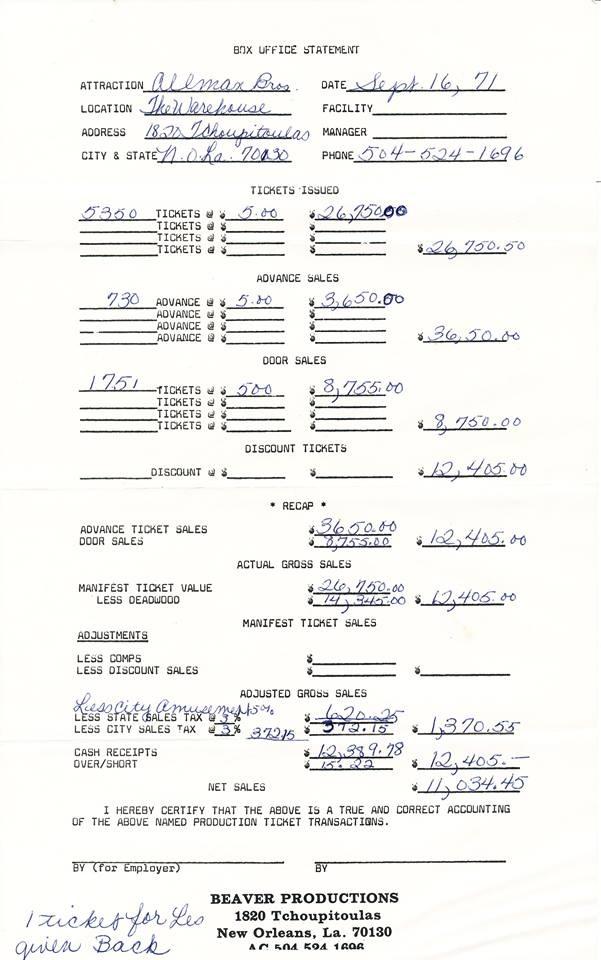 BOX OFFICE STATEMENT
ATTRACTION Allman Bros. DATE Sept. 16, 71
LOCATION The Warehouse FACILITY
ADDRESS 1820 Tchoupitoulas MANAGER
CITY & STATE N.O. La. 70130 PHONE 504-524-1696
TICKETS ISSUED
5350 TICKETS @ $ 5.00 $ 26,750.00
TICKETS @ $ $
TICKETS @ $ $
TICKETS @ $ $ $ 26,750.50
ADVANCE SALES
730 ADVANCE @ $ 5.00 $ 3,650.00
ADVANCE @ $ $
ADVANCE @ $ $
ADVANCE @ $ $ $ 36,50.00
DOOR SALES
1751 TICKETS @ $ 500 $ 8,755.00
TICKETS @ $ $
TICKETS @ $ $
TICKETS @ $ $ $ 8,750.00
DISCOUNT TICKETS
DISCOUNT @ $ $ $ 12,405.00
* RECAP *
ADVANCE TICKET SALES $ 3650.00
DOOR SALES $ 8,755.00 $ 12,405.00
ACTUAL GROSS SALES
MANIFEST TICKET VALUE $ 26,750.00
LESS DEADWOOD $ 14,345.00 $ 12,405.00
MANIFEST TICKET SALES
ADJUSTMENTS
LESS COMPS $
LESS DISCOUNT SALES $ $
ADJUSTED GROSS SALES
Less City Amusement 5%
LESS STATE SALES TAX @ 3% $ 620.25
LESS CITY SALES TAX @ 3% 37215 $ 372.15 $ 1,370.55
CASH RECEIPTS $ 12,389.78
OVER/SHORT $ 15.22 $ 12,405.—
NET SALES $ 11,034.45
I HEREBY CERTIFY THAT THE ABOVE IS A TRUE AND CORRECT ACCOUNTING
OF THE ABOVE NAMED PRODUCTION TICKET TRANSACTIONS.
BY (for Employer) BY
BEAVER PRODUCTIONS
1820 Tchoupitoulas
New Orleans, La. 70130
AC 504 524 1696
1 ticket for Les
given Back